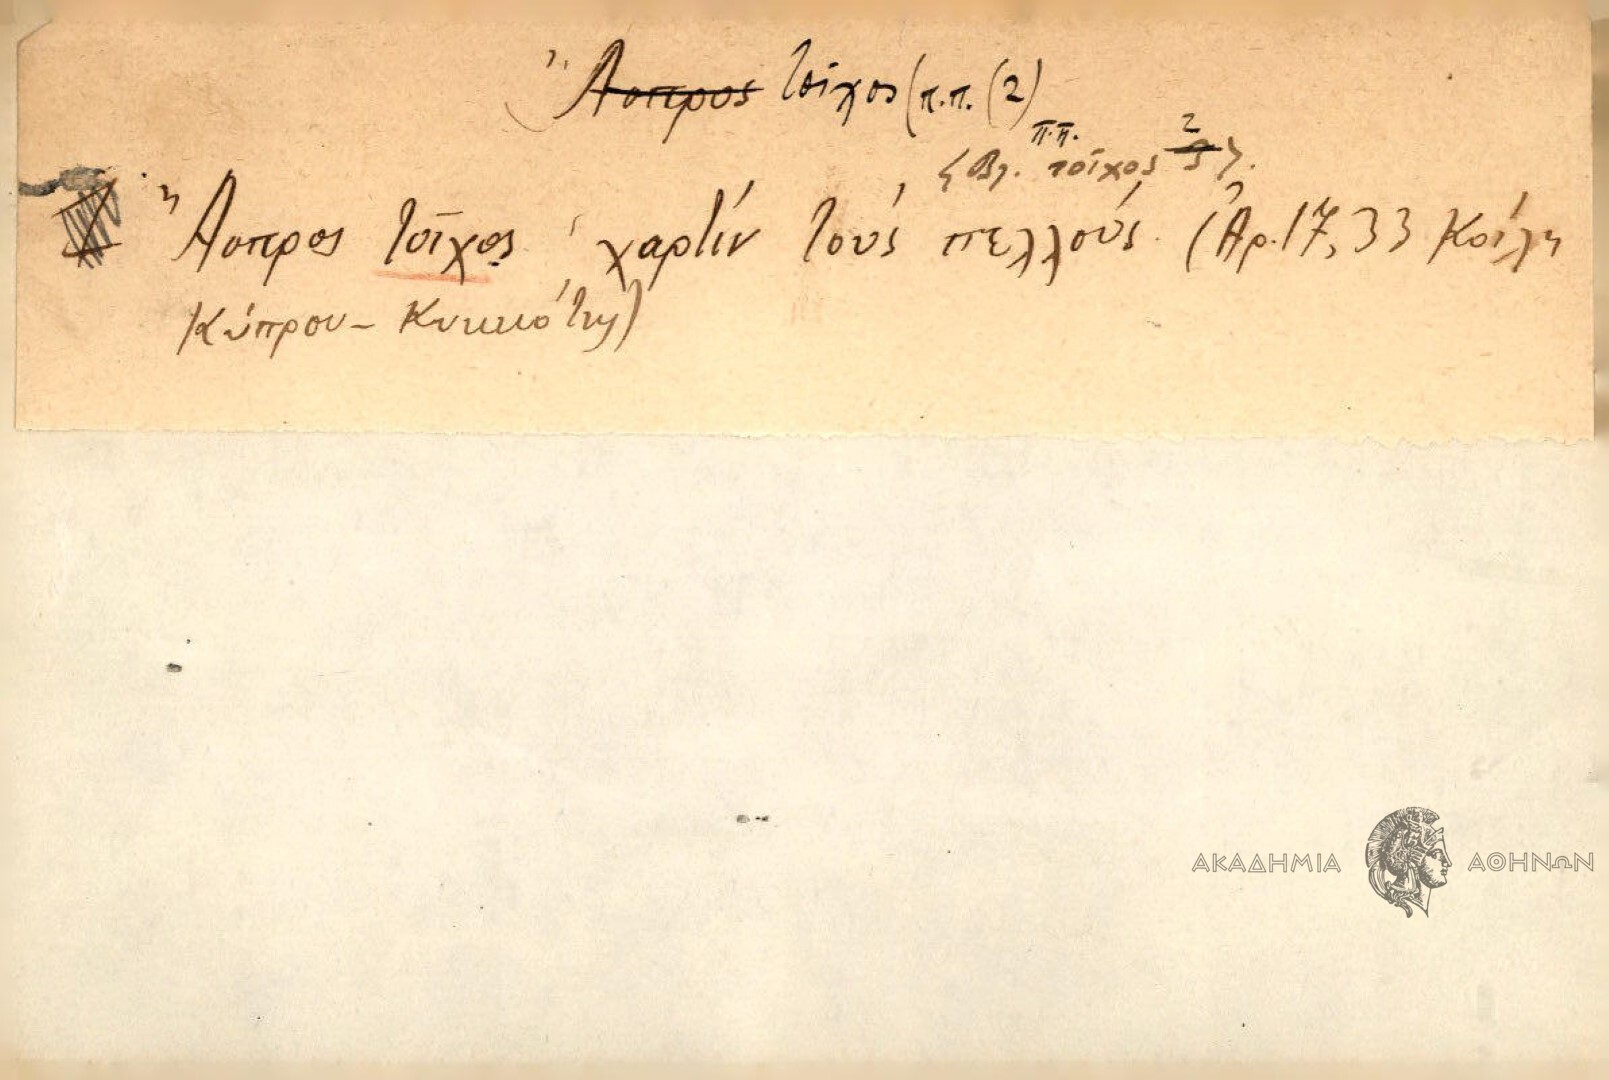 Ἄσπρος τοῖχος (π.π. (2)
π.π. 2
{Βλ. τοῖχος 5}.
Ἄσπρος τοῖχος χαρτὶν τοὺς πελλούς. (Ἀρ. 17, 33 Κοίλη
Κύπρου - Κυκκώτης)
ΑΚΑΔΗΜΙΑ ΑΘΗΝΩΝ